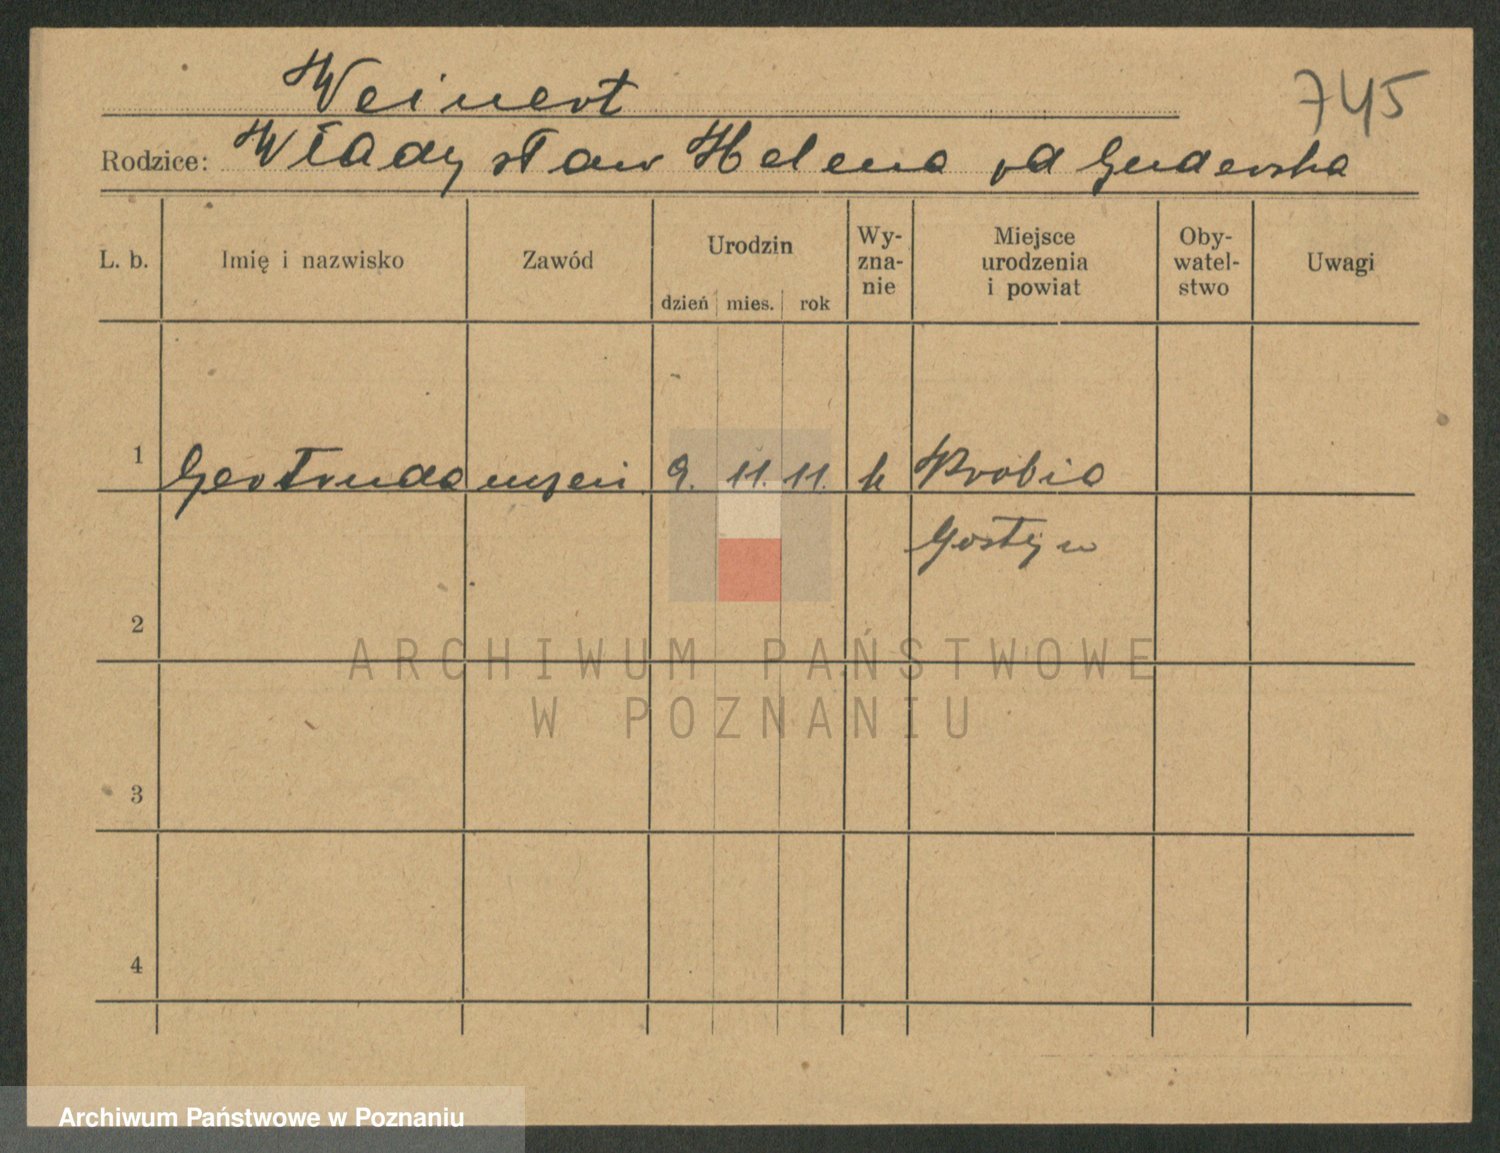 Weinert
745
Rodzice: Władysław Helena od Guderska
L. b. Imię i nazwisko Zawód Urodzin dzień mies. rok Wy-zna-nie Miejsce urodzenia i powiat Oby-watel-stwo Uwagi
1 Gertruda 9. 11. 11. k Krobia
Gostyn
2
ARCHIWUM PAŃSTWOWE
W POZNANIU
3
4
Archiwum Państwowe w Poznaniu